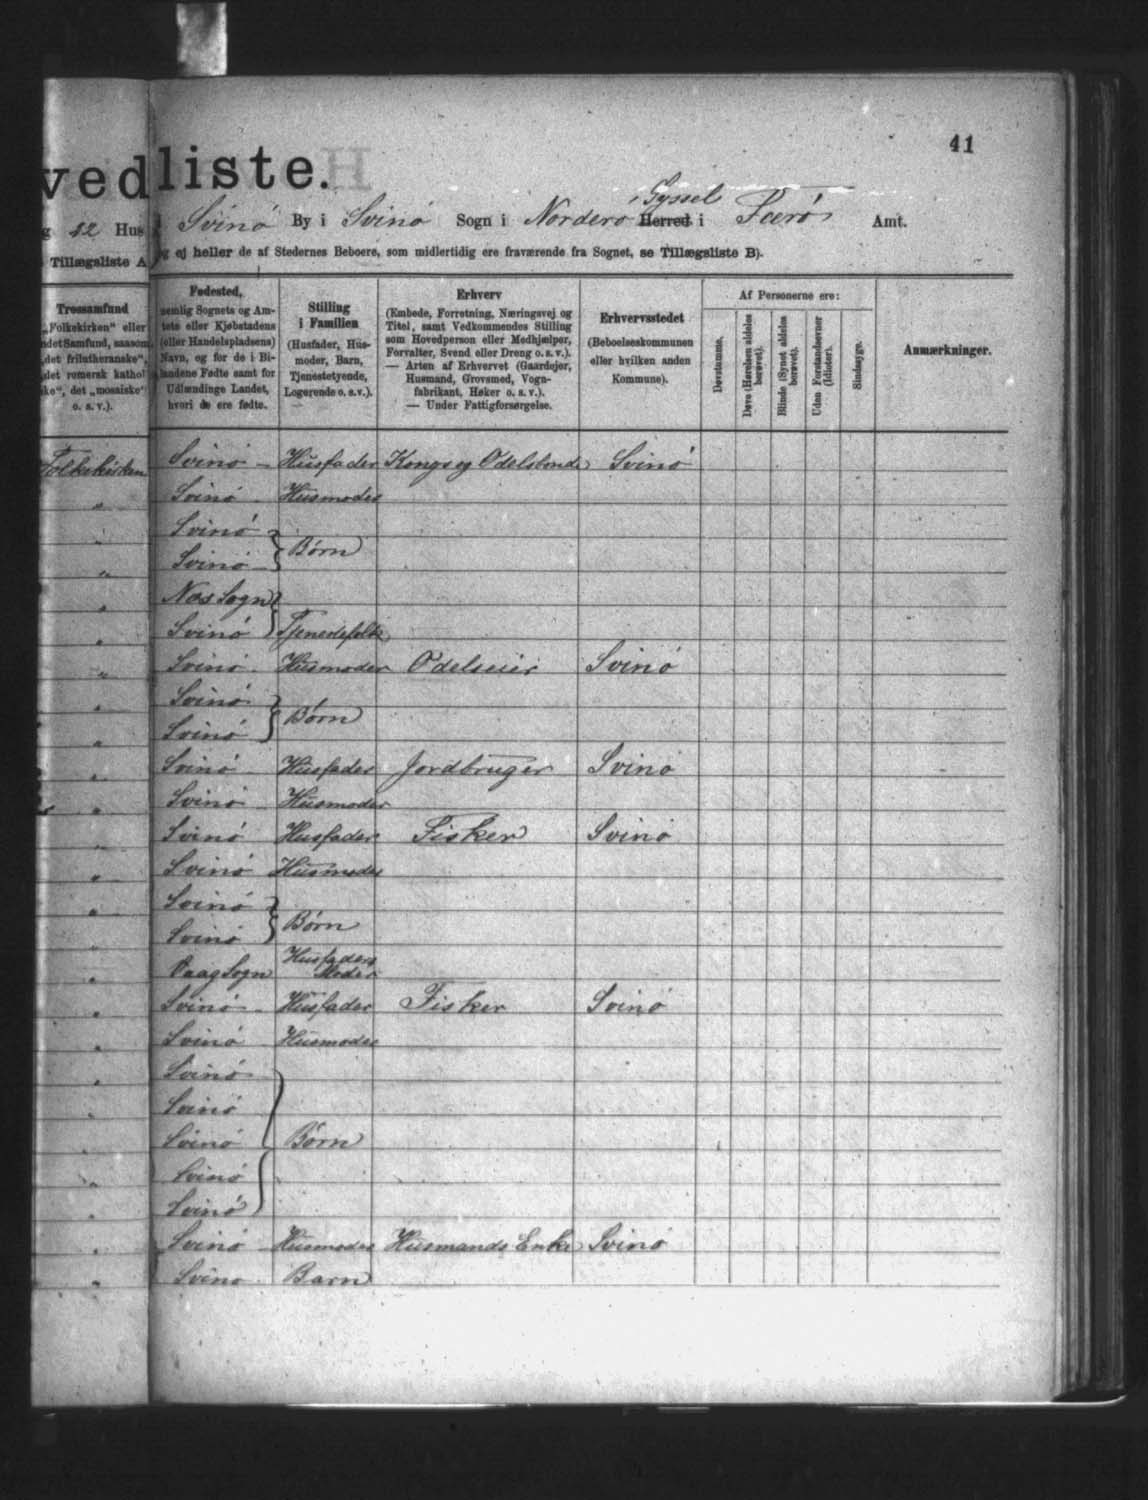 41
vedliste.
g 12 Hus i Svinø By i Svinø Sogn i Norderø Herred i Syssel Færø Amt.
Tillægsliste A
g ej heller de af Stedernes Beboere, som midlertidig ere fraværende fra Sognet, se Tillægsliste B).
Trossamfund
„Folkekirken“ eller
ndet Samfund, saasom
„det frilutheranske“,
det romersk kathol
ke“, det „mosaiske“
o. s. v.).
Fødested,
nemlig Sognets og Am-
tets eller Kjøbstadens
(eller Handelspladsens)
Navn, og for de i Bi-
landene Fødte samt for
Udlændinge Landet,
hvori de ere fødte.
Stilling
i Familien
(Husfader, Hus-
moder, Barn,
Tjenestetyende,
Logerende o. s. v.).
Erhverv
(Embede, Forretning, Næringsvej og
Titel, samt Vedkommendes Stilling
som Hovedperson eller Medhjælper,
Forvalter, Svend eller Dreng o. s. v.).
— Arten af Erhvervet (Gaardejer,
Husmand, Grovsmed, Vogn-
fabrikant, Høker o. s. v.).
— Under Fattigforsørgelse.
Erhvervsstedet
(Beboelseskommunen
eller hvilken anden
Kommune).
Af Personerne ere:
Døvstumme.
Døve (Hørelsen aldeles
berøvet).
Blinde (Synet aldeles
berøvet).
Uden Forstandsevner
(Idioter).
Sindssyge.
Anmærkninger.
Folkekirken Svinø Husfader Kongs og Odelsbonde Svinø
" Svinø Husmoder
" Svinø
" Svinø } Børn
" Næs Sogn
" Svinø } Tjenestefolk
" Svinø Husmoder Odelseier Svinø
" Svinø
" Svinø } Børn
" Svinø Husfader Jordbruger Svinø
" Svinø Husmoder
" Svinø Husfader Fisker Svinø
" Svinø Husmoder
" Svinø
" Svinø } Børn
" Vaag Sogn Husfaders Moder
" Svinø Husfader Fisker Svinø
" Svinø Husmoder
" Svinø
" Svinø
" Svinø } Børn
" Svinø
" Svinø
" Svinø Husmoder Husmands Enke Svinø
" Svinø Barn